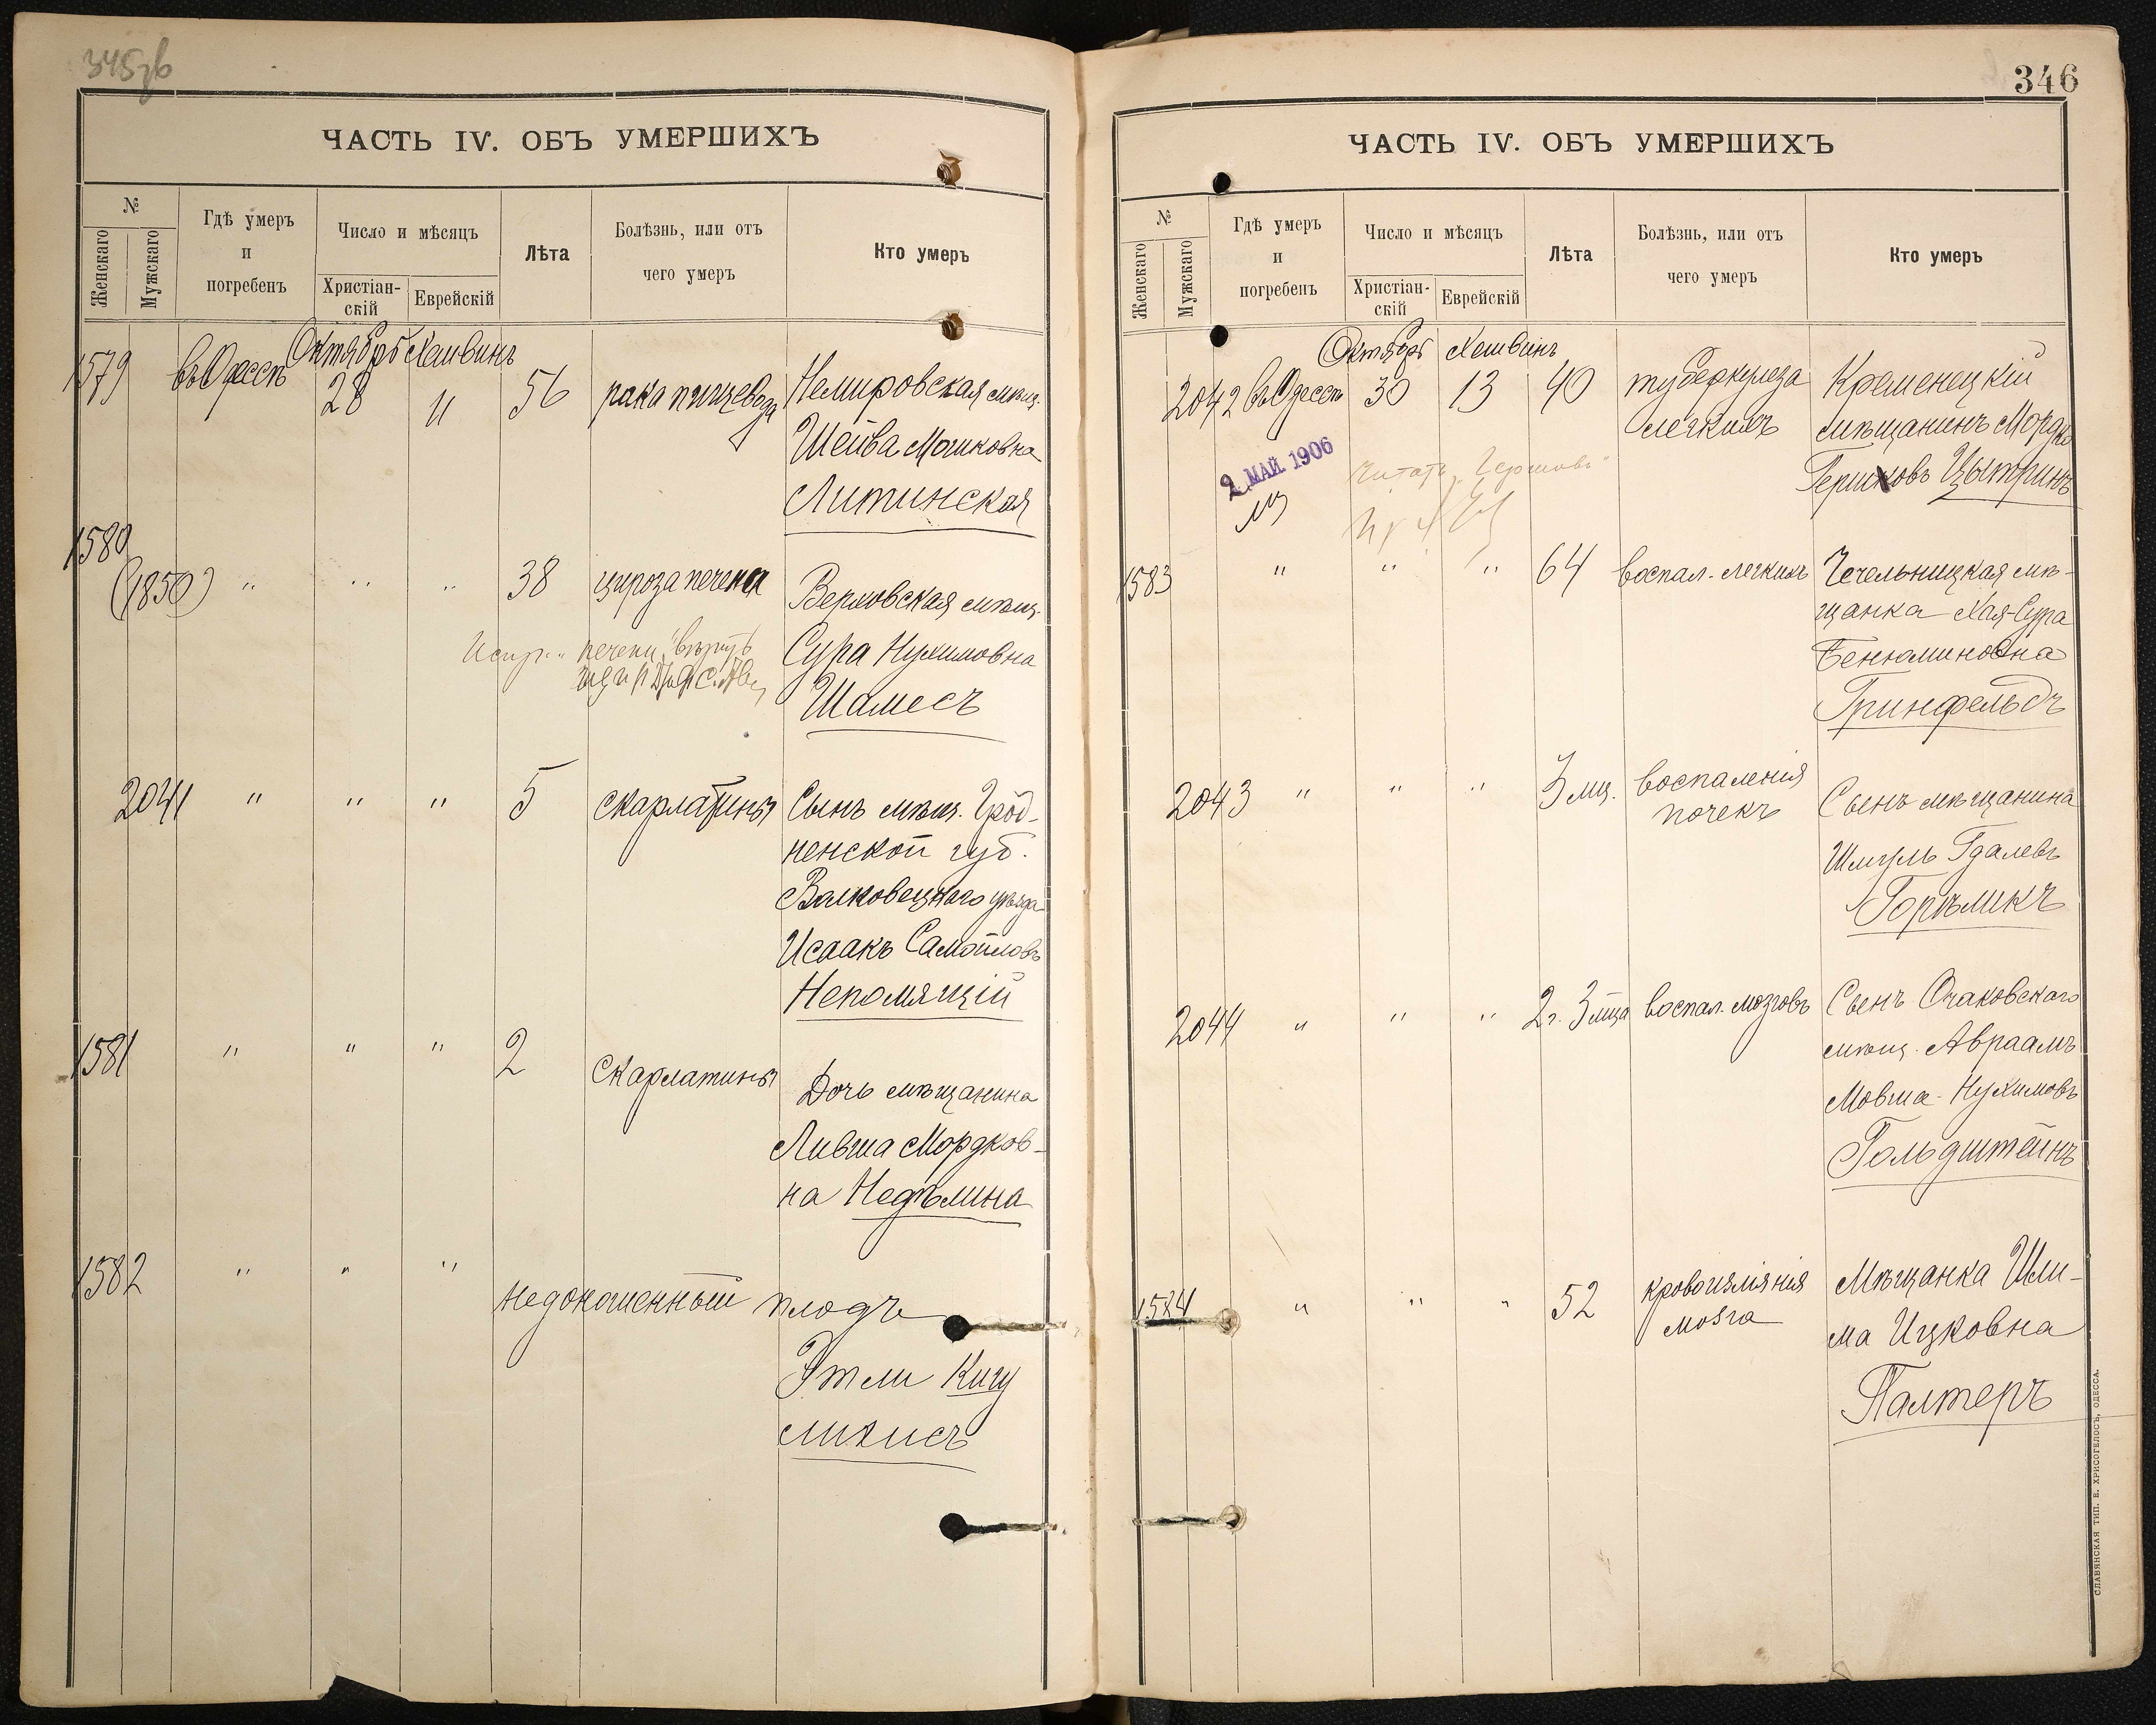 345зв
ЧАСТЬ IV. ОБЪ УМЕРШИХЪ
№
Женскаго
Мужскаго
Гдѣ умеръ
и
погребенъ
Число и мѣсяцъ
Христіан-
скій
Еврейскій
Лѣта
Болѣзнь, или отъ
чего умеръ
Кто умеръ
Октябрь Хешвинъ
1579 въ Одессѣ 28 11 56 рака пищевода Немировская мѣщ.
Шейва Мошковна
Литинская
1580
(1850) " " " 38 цироза печени Верховская мѣщ.
печени" вѣрить
Сура Нухимовна
Шамесъ
2041 " " " 5 скарлатины Сынъ мѣщ. Грод-
ненской губ.
Волковецкаго уѣзда
Исаакъ Самойловъ
Непомящій
1581 " " " 2 скарлатины Дочь мѣщанина
Ливша Мордков-
на Недѣлина
1582 " " " недоношенный плодъ
Этли Кигу
ликисъ
346
ЧАСТЬ IV. ОБЪ УМЕРШИХЪ
№
Женскаго
Мужскаго
Гдѣ умеръ
и
погребенъ
Число и мѣсяцъ
Христіан-
скій
Еврейскій
Лѣта
Болѣзнь, или отъ
чего умеръ
Кто умеръ
Октябрь Хешвинъ
2042 въ Одессѣ 30 13 40 туберкулеза Кременецкій
легкихъ мѣщанинъ Мордко
Гершковъ Цытринъ
2 МАЙ 1906
Читать "Гершовъ"
1583 " " " 64 воспал. легкихъ Чечельницкая мѣ-
щанка Хая-Сура
Бенюминовна
Гринфельдъ
2043 " " " 3 мц. воспаленія
почекъ Сынъ мѣщанина
Шмуль Гдалевъ
Горѣликъ
2044 " " " 2 г. 3 мца воспал. мозговъ Сынъ Очаковскаго
мѣщ. Авраамъ
Мовша Нухимовъ
Гольдштейнъ
1584 " " " 52 кровоизліянія Мѣщанка Шли-
мозга ма Ицковна
Палтеръ
СЛАВЯНСКАЯ ТИП. Е. ХРИСОГЕЛОСЪ, ОДЕССА.